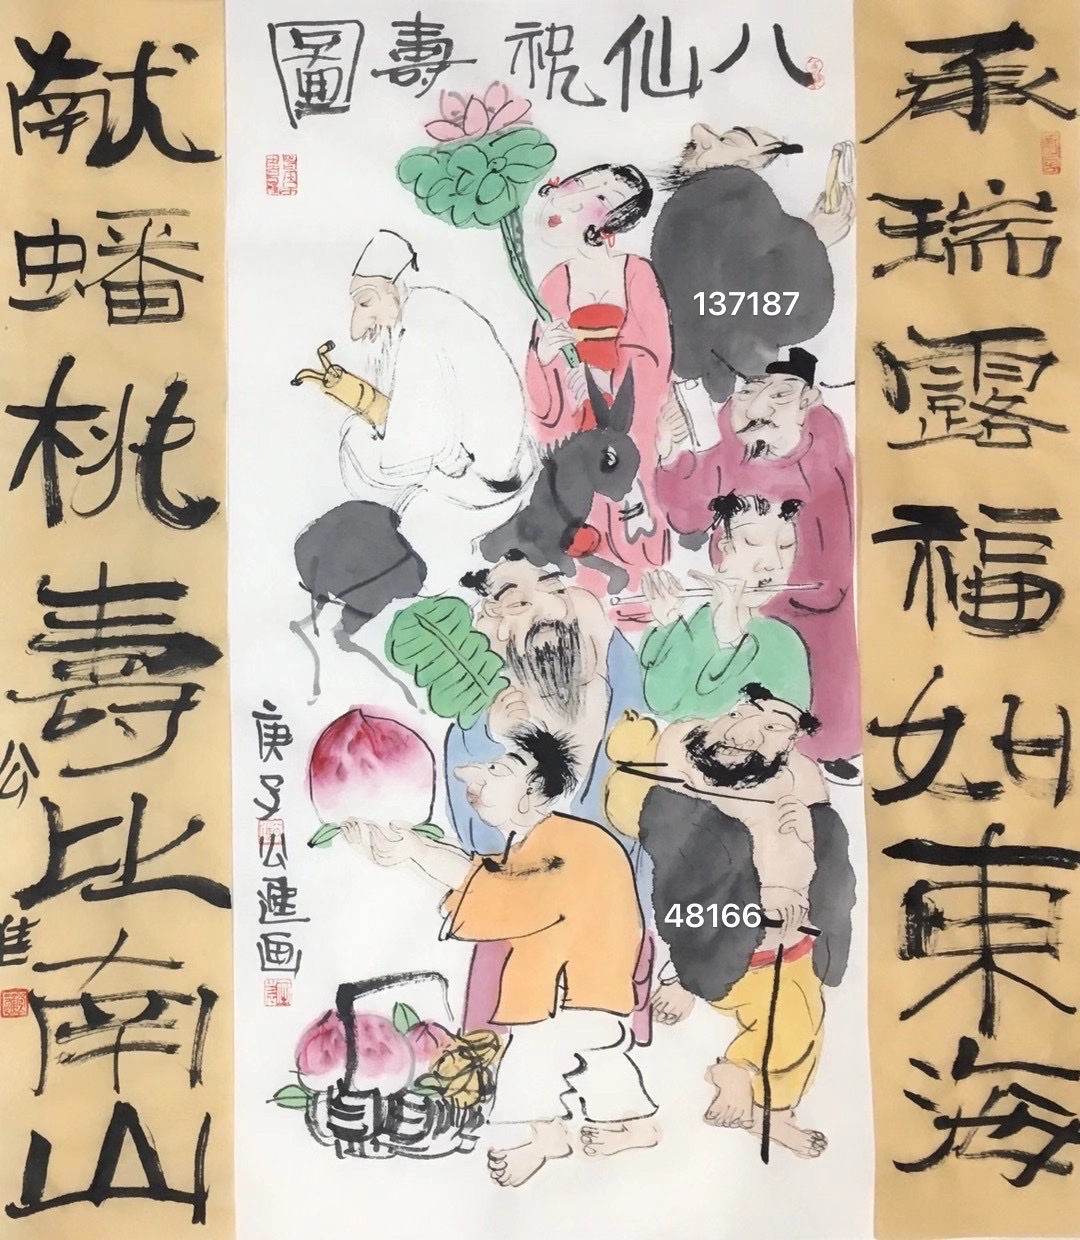 八仙祝壽圖
承瑞露福如東海
献蟠桃壽比南山
庚子公進画
公進
137187
48166